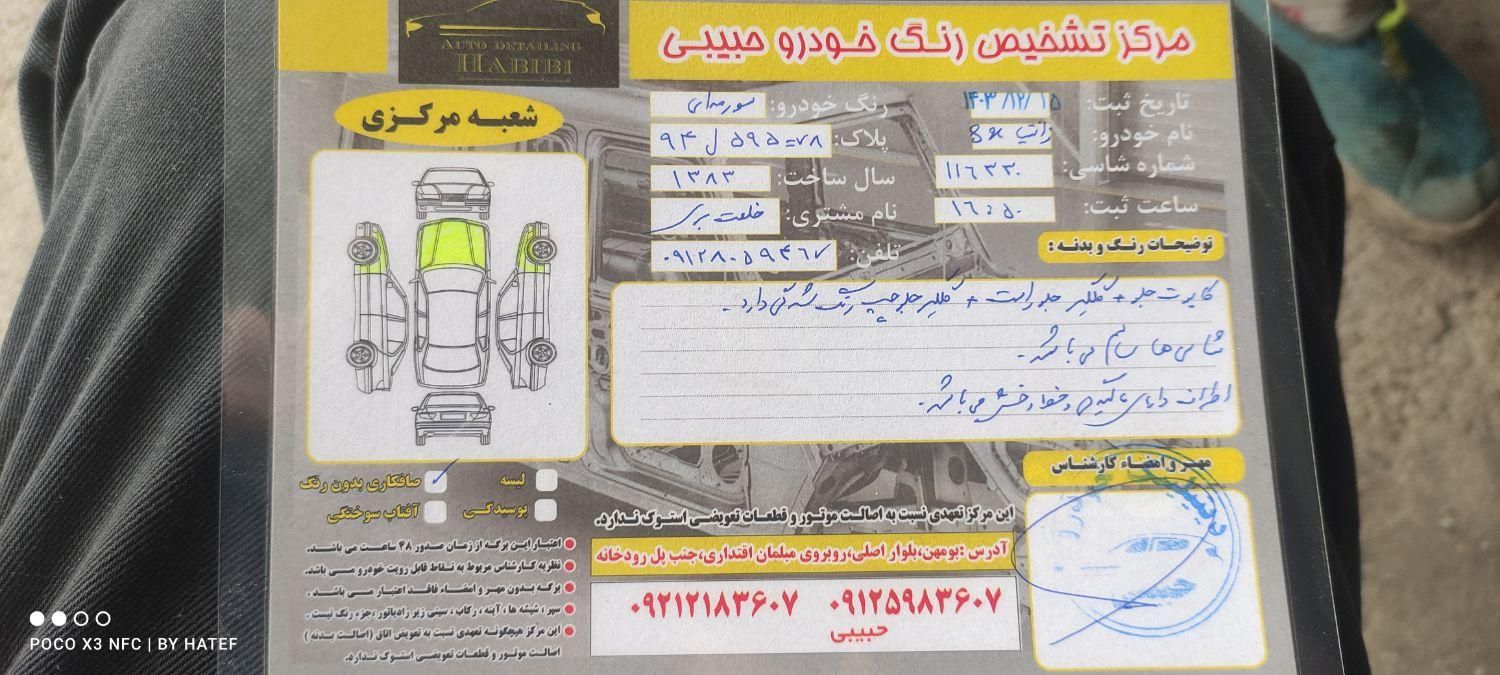 AUTO DETAILING
HABIBI
مرکز تشخیص رنگ خودرو حبیبی
شعبه مرکزی
تاریخ ثبت: ۱۴۰۳/۱۲/۱۵
رنگ خودرو: سورمه‌ای
نام خودرو: زانتیا sx
پلاک: ۹۴ ل ۵۹۵ = ۷۸
شماره شاسی: ۱۱۶۳۳۰
سال ساخت: ۱۳۸۳
ساعت ثبت: ۱۶:۵۰
نام مشتری: خلعت بری
تلفن: ۰۹۱۲۸۰۵۹۴۶۷
توضیحات رنگ و بدنه :
کاپوت جلو + گلگیر جلو راست + گلگیر جلو چپ رنگ شدگی دارد.
شاسی ها سالم می باشد.
اطراف دارای لکه گیری و خط و خش می باشد.
مهر و امضاء کارشناس
لیسه
صافکاری بدون رنگ
پوسیدگی
آفتاب سوختگی
این مرکز تعهدی نسبت به اصالت موتور و قطعات تعویضی استوک ندارد.
آدرس :بومهن،بلوار اصلی،روبروی مبلمان اقتداری،جنب پل رودخانه
۰۹۱۲۵۹۸۳۶۰۷
۰۹۲۱۲۱۸۳۶۰۷
حبیبی
اعتبار این برگه از زمان صدور ۴۸ ساعت می باشد.
نظریه کارشناس مربوط به نقاط قابل رویت خودرو می باشد.
برگه بدون مهر و امضاء فاقد اعتبار می باشد .
سپر ، شیشه ها ، آینه ، رکاب ، سینی زیر رادیاتور ،جزء رنگ نیست .
این مرکز هیچگونه تعهدی نسبت به تعویض اتاق (اصالت بدنه )
اصالت موتور و قطعات تعویضی استوک ندارد.
POCO X3 NFC | BY HATEF